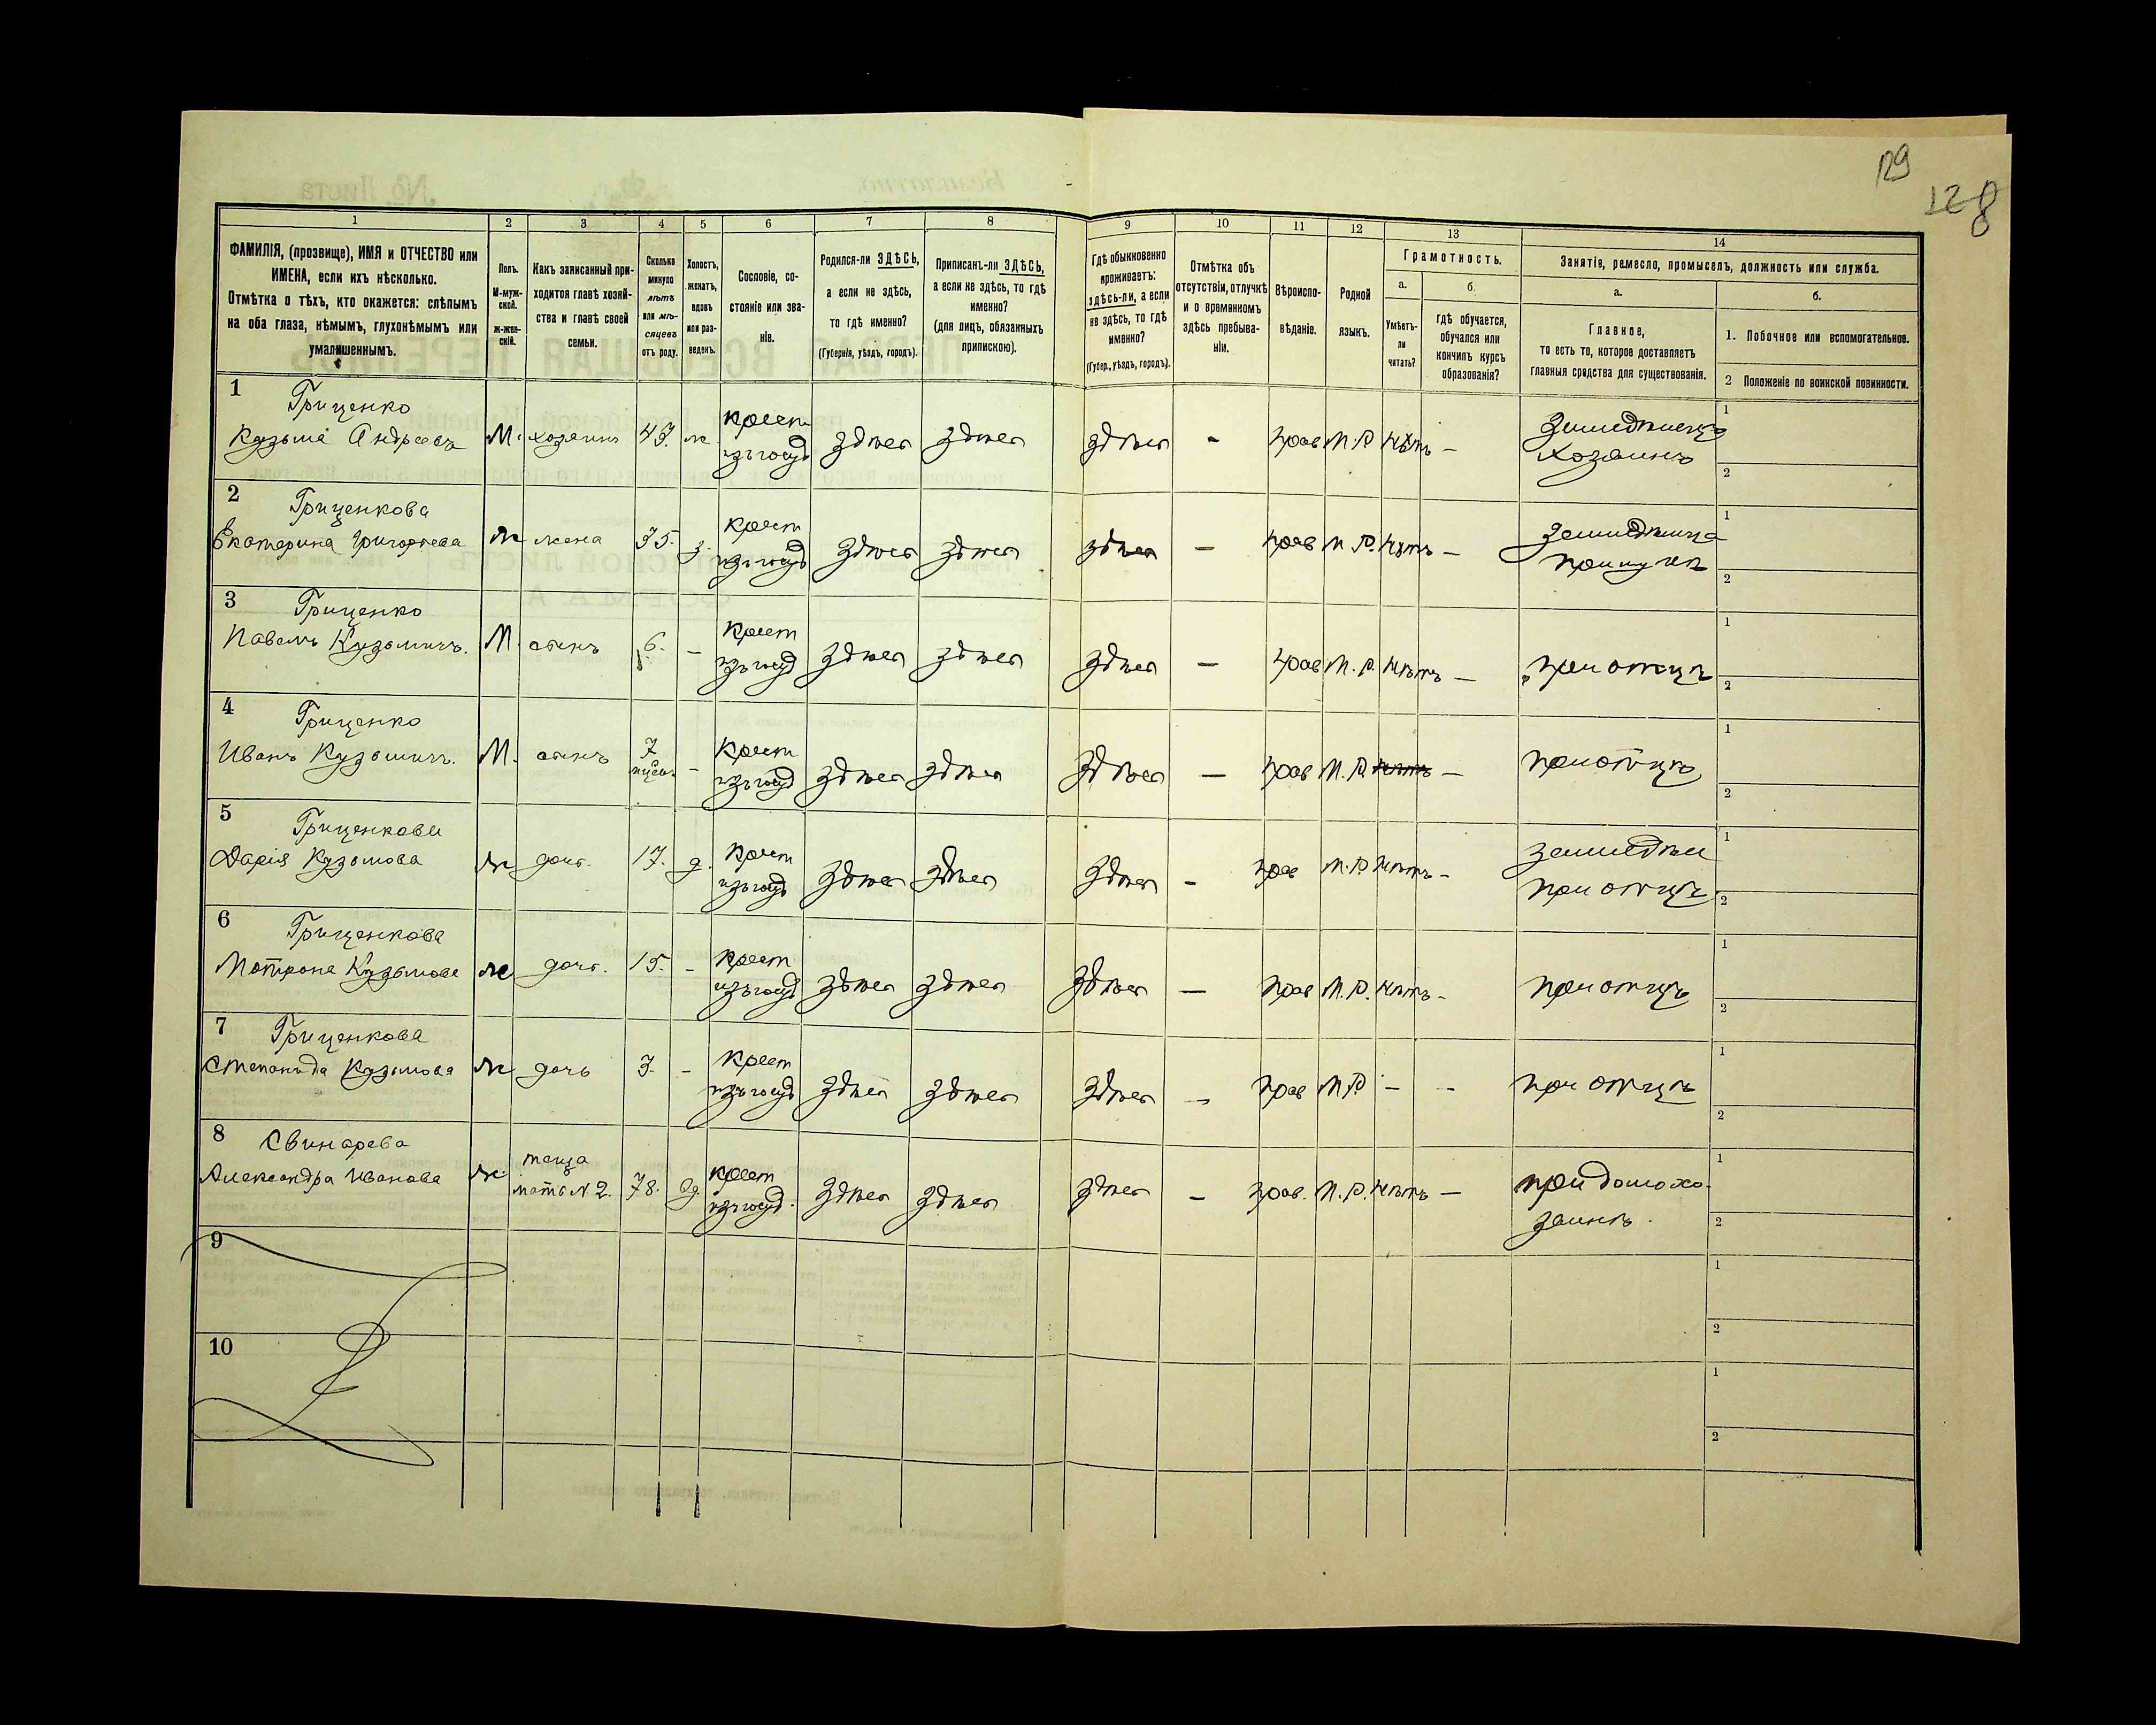 129
128
1
2
3
4
5
6
7
8
9
10
11
12
13
14
ФАМИЛІЯ, (прозвище), ИМЯ и ОТЧЕСТВО или
ИМЕНА, если ихъ нѣсколько.
Отмѣтка о тѣхъ, кто окажется: слѣпымъ
на оба глаза, нѣмымъ, глухонѣмымъ или
умалишеннымъ.
Полъ.
М-муж-
ской.
ж-жен-
скій.
Какъ записанный при-
ходится главѣ хозяй-
ства и главѣ своей
семьи.
Сколько
минуло
лѣтъ
или мѣ-
сяцевъ
отъ роду.
Холостъ,
женатъ,
вдовъ
или раз-
веденъ.
Сословіе, со-
стояніе или зва-
ніе.
Родился-ли ЗДѢСЬ,
а если не здѣсь,
то гдѣ именно?
(Губернія, уѣздъ, городъ).
Приписанъ-ли ЗДѢСЬ,
а если не здѣсь, то гдѣ
именно?
(для лицъ, обязанныхъ
припискою).
Гдѣ обыкновенно
проживаетъ:
здѣсь-ли, а если
не здѣсь, то гдѣ
именно?
(Губер., уѣздъ, городъ).
Отмѣтка объ
отсутствіи, отлучкѣ
и о временномъ
здѣсь пребыва-
ніи.
Вѣроиспо-
вѣданіе.
Родной
языкъ.
Грамотность.
а.
Умѣетъ-
ли
читать?
б.
гдѣ обучается,
обучался или
кончилъ курсъ
образованія?
Занятія, ремесло, промыселъ, должность или служба.
а.
Главное,
то есть то, которое доставляетъ
главныя средства для существованія.
б.
1. Побочное или вспомогательное.
2 Положеніе по воинской повинности.
1
Гриценко
Кузьма Андреевъ
М. хозяинъ 43. ж. крест
изъ госуд здѣсь здѣсь здѣсь - прав М.Р. нѣтъ -
Хозяинъ
1
2
2
Гриценкова
Екатерина Григорьева
ж жена 35. з. крест
изъ госуд здѣсь здѣсь здѣсь - прав М.Р. нѣтъ -
при мужѣ
1
2
3
Гриценко
Павелъ Кузьмичъ.
М. сынъ 6. - крест
изъ госуд здѣсь здѣсь здѣсь - прав М.Р. нѣтъ -
при отцѣ
1
2
4
Гриценко
Иванъ Кузьмичъ.
М. сынъ 7
- крест
изъ госуд здѣсь здѣсь здѣсь - прав М.Р. нѣтъ -
при отцѣ
1
2
5
Гриценкова
Дарія Кузьмова
ж дочь. 17. д. крест
изъ госуд здѣсь здѣсь здѣсь - прав М.Р. нѣтъ -
при отцѣ
1
2
6
Гриценкова
Мотрона Кузьмова
ж дочь. 15. - крест
изъ госуд здѣсь здѣсь здѣсь - прав М.Р. нѣтъ -
при отцѣ
1
2
7
Гриценкова
Степанида Кузьмова
ж дочь 3. - крест
изъ госуд здѣсь здѣсь здѣсь - прав М.Р. - -
при отцѣ
1
2
8
Свинарева
Александра Иванова
ж теща
мать N 2. 78. вд. крест
изъ госуд. здѣсь здѣсь здѣсь - прав. М.Р. нѣтъ -
при домохо-
зяинѣ.
1
2
9
1
2
10
1
2